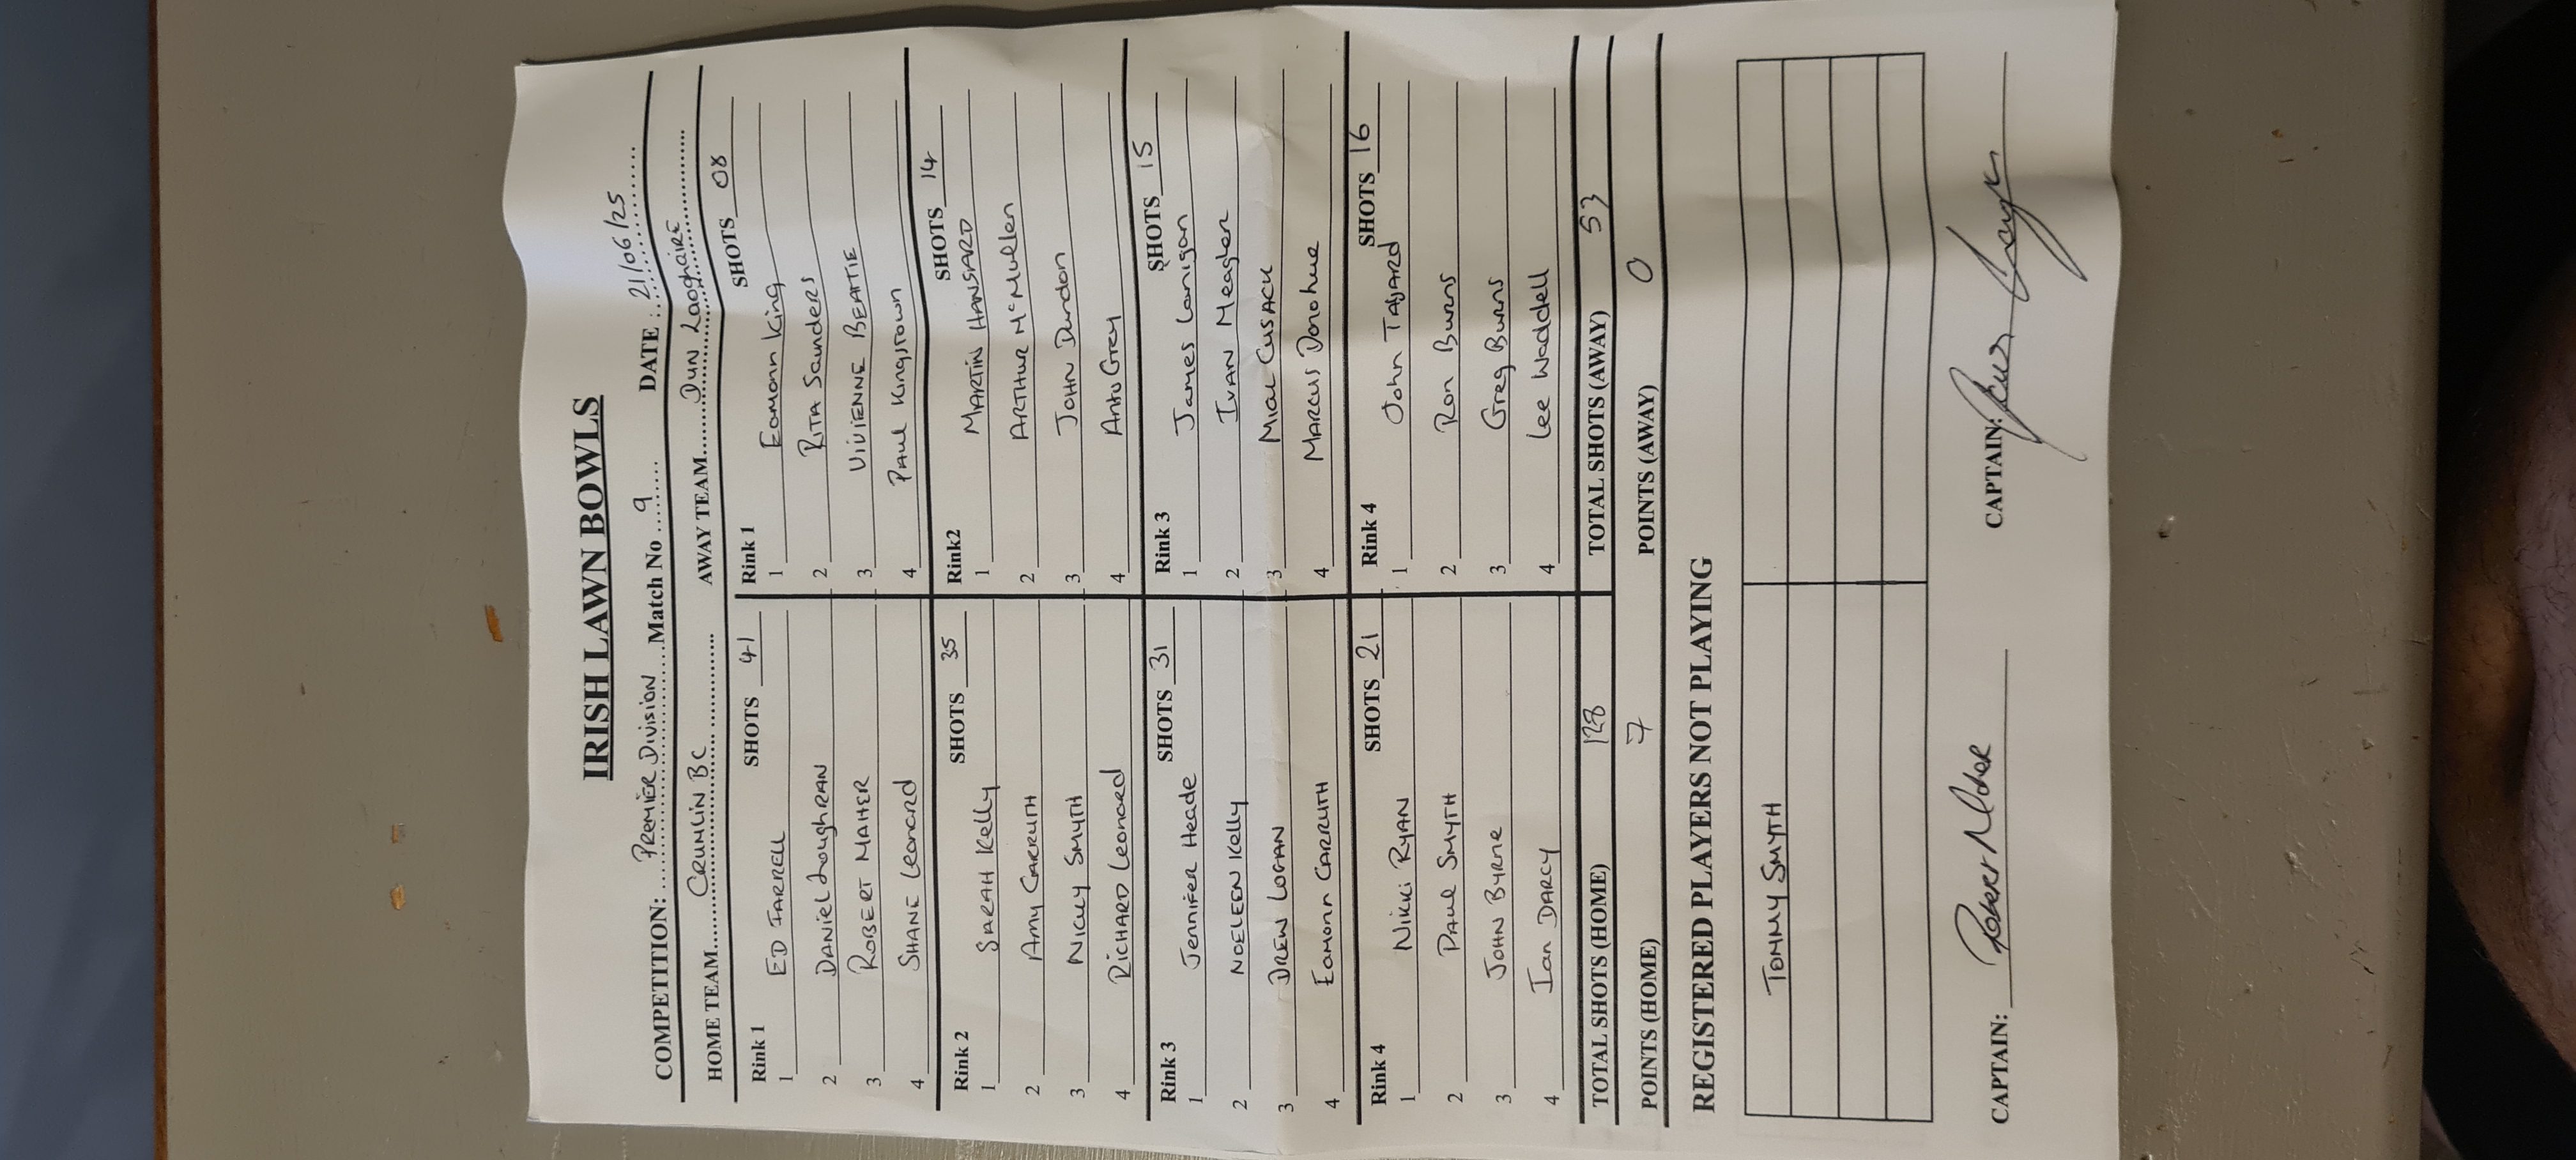 IRISH LAWN BOWLS
COMPETITION: PREMIER Division Match No 9 DATE: 21/06/25
HOME TEAM CRUMLIN BC AWAY TEAM DUN Laoghaire
Rink 1 SHOTS 41 Rink 1 SHOTS 08
1 ED FARRELL 1 Eamonn King
2 DANIEL Loughran 2 RITA Saunders
3 ROBERT MAHER 3 VIVIENNE BEATTIE
4 SHANE Leonard 4 PAUL Kingstown
Rink 2 SHOTS 35 Rink2 SHOTS 14
1 SARAH Kelly 1 MARTIN HANSARD
2 AMY CARRUTH 2 ARTHUR McMullen
3 NICKY SMYTH 3 JOHN Dundon
4 RICHARD Leonard 4 Anto Gray
Rink 3 SHOTS 31 Rink 3 SHOTS 15
1 Jennifer Heade 1 James Lanigan
2 NOELEEN Kelly 2 IVAN Meagher
3 DREW LOGAN 3 CUSACK
4 Eamonn CARRUTH 4 MARCUS Donohue
Rink 4 SHOTS 21 Rink 4 SHOTS 16
1 Nikki RYAN 1 John
2 PAUL SMYTH 2 Ron Burns
3 JOHN BYRNE 3 Greg Burns
4 Ian DARCY 4 Lee Waddell
TOTAL SHOTS (HOME) 128 TOTAL SHOTS (AWAY) 53
POINTS (HOME) 7 POINTS (AWAY) 0
REGISTERED PLAYERS NOT PLAYING
TOMMY SMYTH
CAPTAIN: Robert Maher CAPTAIN: